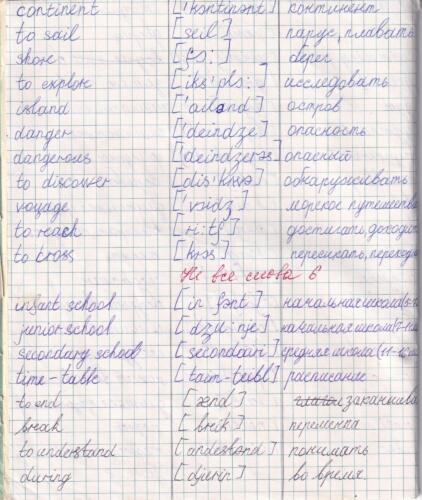 continent ['kontinənt] континент
to sail [seil] парус, плавать
shore [ʃo:] берег
to explore [iks'plo:] исследовать
island ['ailənd] остров
danger ['deindzə] опасность
dangerous [deindzerəs] опасный
to discover [dis'kavə] обнаруживать
voyage ['voidz] морское путешестви
to reach [ri:tʃ] достигать, доходит
to cross [krəs] пересекать, переходи
Не все слова 6
infant school [in fənt] начальная школа
junior school [dzu:nje] начальная школа
secondary school [secondəri] средняя школа
time-table [taim-teibl] расписание
to end [ænd] заканчива
break [brik] переменка
to understand [andestənd] понимать
during [djuerin] во время